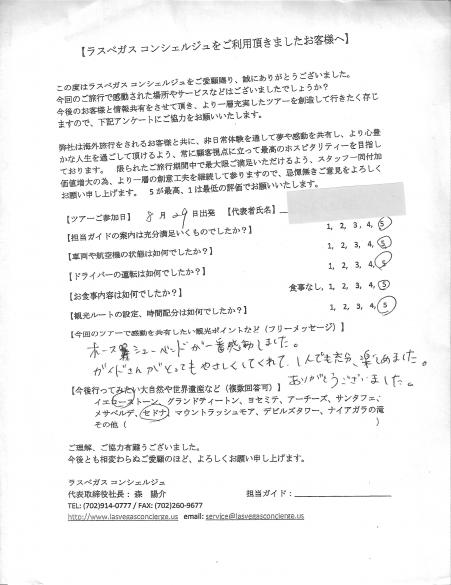 【ラスベガス コンシェルジュをご利用頂きましたお客様へ】
この度はラスベガス コンシェルジュをご愛顧賜り、誠にありがとうございました。
今回のご旅行で感動された場所やサービスなどはございましたでしょうか?
今後のお客様と情報共有をさせて頂き、より一層充実したツアーを創造して行きたく存じ
ますので、下記アンケートにご協力をお願いいたします。
弊社は海外旅行をされるお客様と共に、非日常体験を通して夢や感動を共有し、より心豊
かな人生を過ごして頂けるよう、常に顧客視点に立って最高のホスピタリティーを目指し
ております。 限られたご旅行期間中で最大限ご満足いただけるよう、スタッフ一同付加
価値増大の為、より一層の創意工夫を継続して参りますので、忌憚無きご意見をよろしく
お願い申し上げます。 5が最高、1は最低の評価でお願いいたします。
【ツアーご参加日】 8月29日出発 【代表者氏名】
【担当ガイドの案内は充分満足いくものでしたか?】 1, 2, 3, 4, 5
【車両や航空機の状態は如何でしたか?】 1, 2, 3, 4, 5
【ドライバーの運転は如何でしたか?】 1, 2, 3, 4, 5
【お食事内容は如何でしたか?】 食事なし, 1, 2, 3, 4, 5
【観光ルートの設定、時間配分は如何でしたか?】 1, 2, 3, 4, 5
【今回のツアーで感動を共有したい観光ポイントなど(フリーメッセージ)】
ホースシューベンドが一番感動しました。
ガイドさんがとってもやさしくしてくれて、1人でも充分楽しめました。
ありがとうございました。
【今後行ってみたい大自然や世界遺産など(複数回答可)】
イエローストーン、グランドティートン、ヨセミテ、アーチーズ、サンタフェ、
メサベルデ、セドナ、マウントラッシュモア、デビルズタワー、ナイアガラの滝
その他( )
ご理解、ご協力有難うございました。
今後とも相変わらぬご愛顧のほど、よろしくお願い申し上げます。
ラスベガス コンシェルジュ
代表取締役社長: 森 陽介 担当ガイド:
TEL: (702)914-0777 / FAX: (702)260-9677
http://www.lasvegasconcierge.us email: service@lasvegasconcierge.us